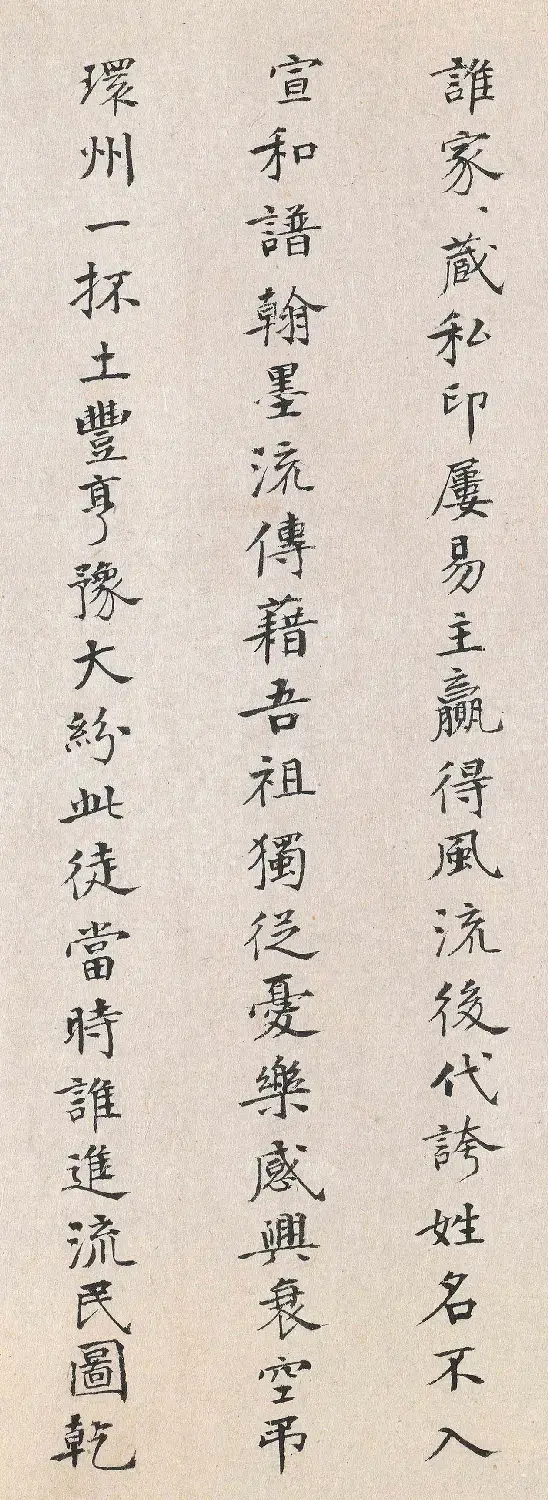 誰家、藏私印屢易主贏得風流後代誇姓名不入
宣和譜翰墨流傳藉吾祖獨從憂樂感興衰空弔
環州一抔土豐亨豫大紛此徒當時誰進流民圖乾